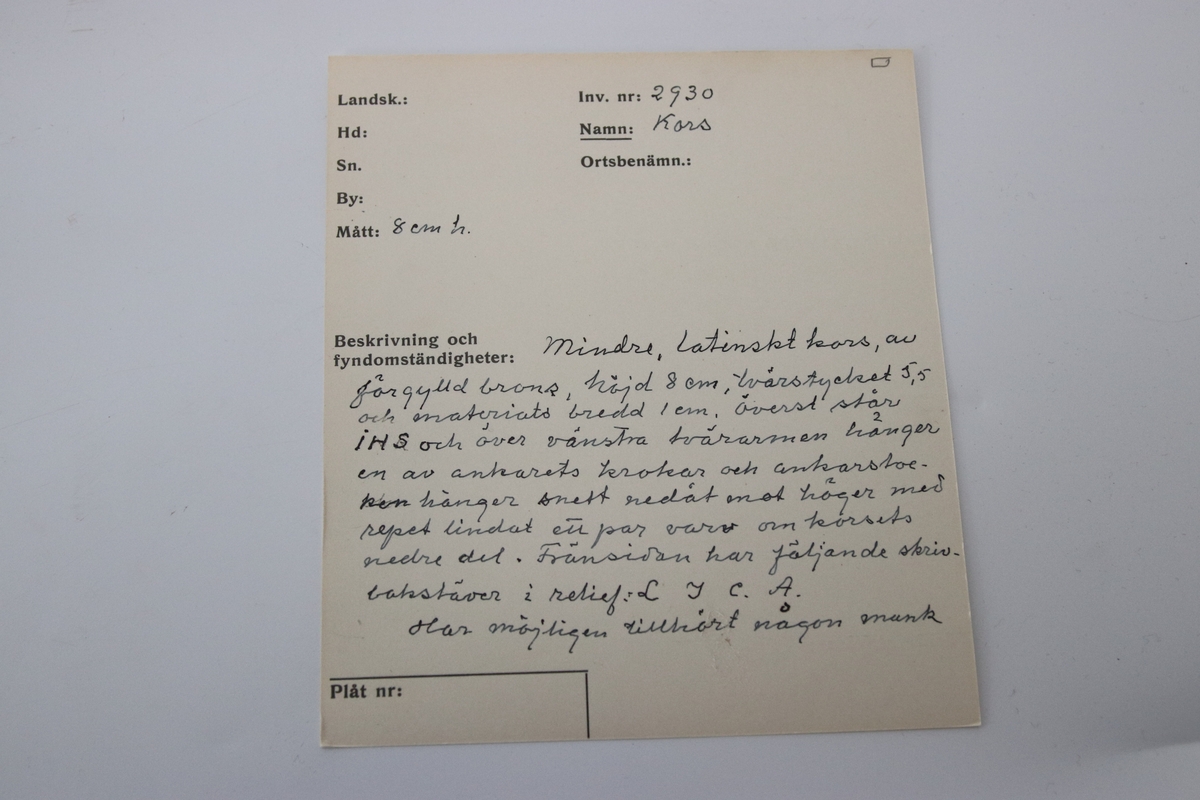 Landsk.:
Inv. nr: 2930
Hd:
Namn: Kors
Sn.
Ortsbenämn.:
By:
Mått: 8 cm h.
Beskrivning och
fyndomständigheter: Mindre, latinskt kors, av
förgylld brons, höjd 8 cm, tvärstycket 5,5
och materiats bredd 1 cm. Överst står
IHS och över vänstra tvärarmen hänger
en av ankarets krokar och ankarstoc-
ken hänger snett nedåt mot höger med
repet lindat ett par varv om korsets
nedre del. Frånsidan har följande skriv-
bokstäver i relief: L I C. A.
Har möjligen tillhört någon munk
Plåt nr: